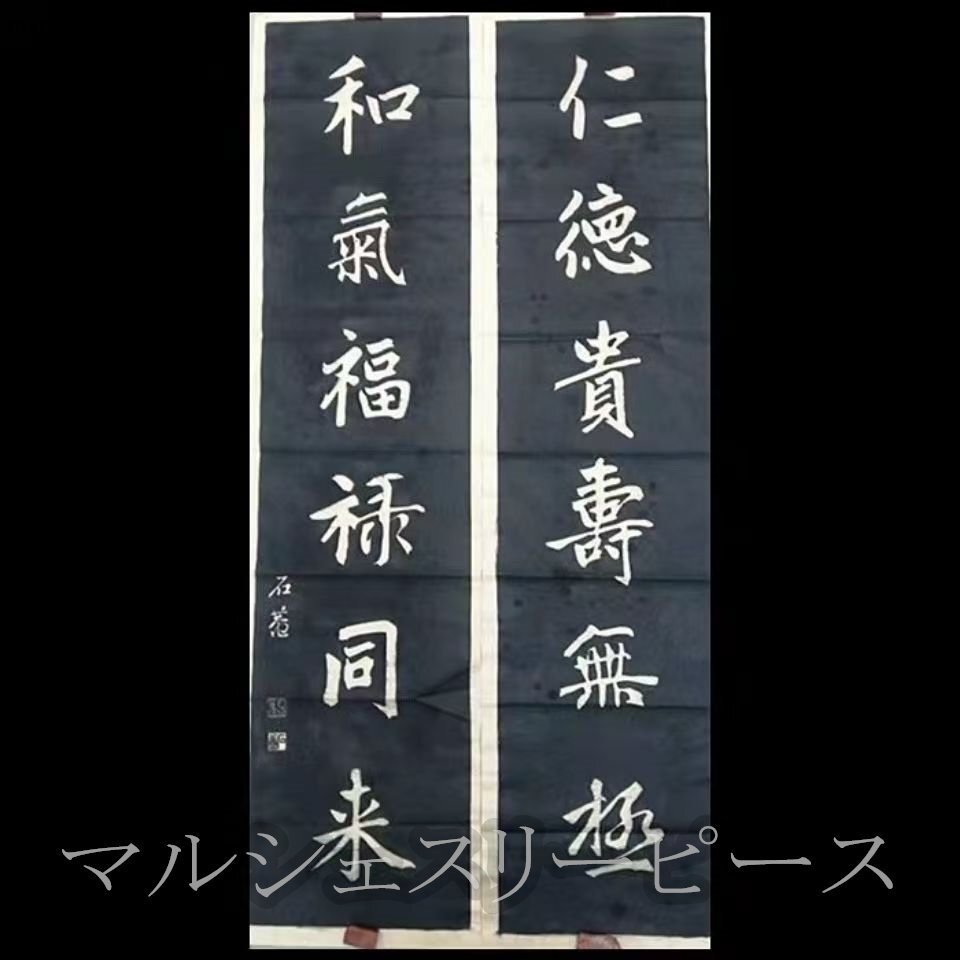 仁德貴壽無極
和氣福禄同来
石菴
マルシェスリーピース